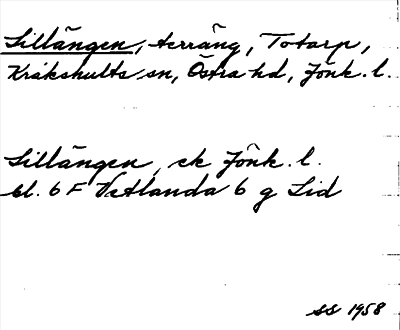 Lillängen, terräng, Totarp,
Kråkshults sn, Östra hd, Jönk. l.
Lillängen, ek Jönk. l.
bl. 6 F Vetlanda 6 g Lid
SS 1958